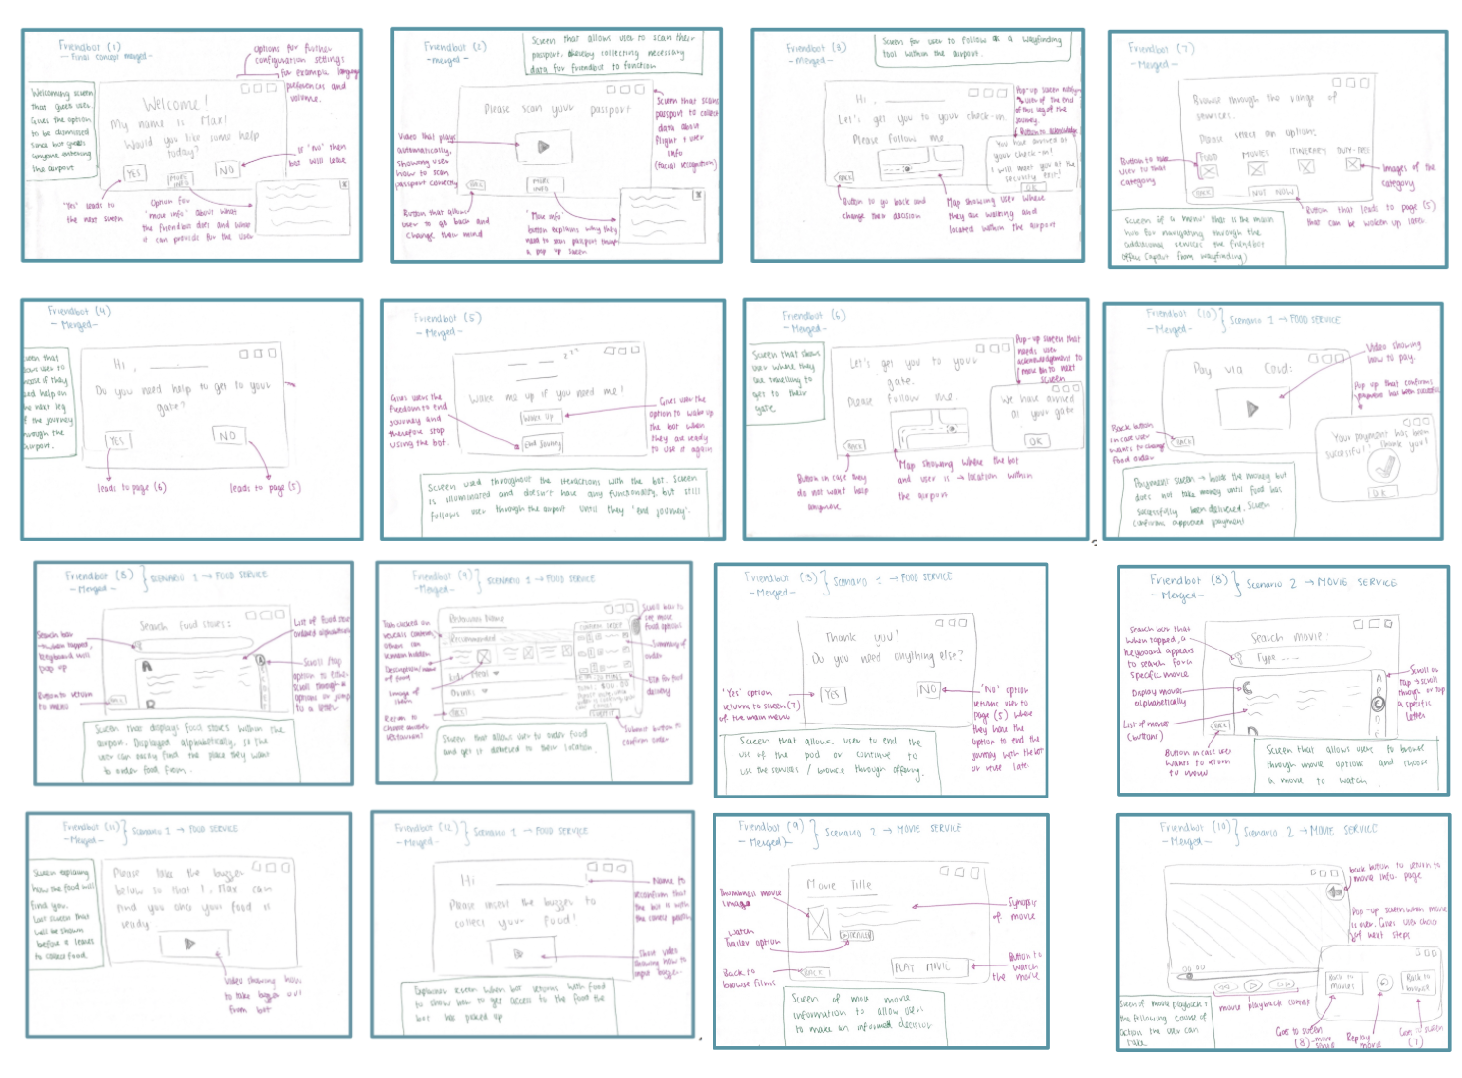 Friendbot (1)
- Final concept merged -
Options for further
configuration settings
for example language
preferences and
volume.
Welcoming screen
that greets user.
Gives the option
to be dismissed
since bot greets
anyone entering
the airport
Welcome!
My name is Max!
Would you like some help
today?
YES
MORE INFO
NO
If 'no' then
bot will leave
'Yes' leads to
the next screen
Option for
'more info' about what
the friendbot does and what
it can provide for the user
Friendbot (2)
- merged -
Screen that allows user to scan their
passport, thereby collecting necessary
data for friendbot to function
Please scan your passport
Video that plays
automatically,
showing user
how to scan
passport correctly
Screen that scans
passport to collect
data about
flight + user
info
(facial recognition)
BACK
MORE INFO
Button that allows
user to go back and
change their mind
'More info'
button explains why they
need to scan passport through
a pop up screen
Friendbot (3)
- Merged -
Screen for user to follow as a wayfinding
tool within the airport.
Hi, ________
Let's get you to your check-in.
Please follow me.
BACK
Pop-up screen notifying
user of the end
of this leg of the
journey.
(Button to acknowledge)
You have arrived at
your check-in!
I will meet you at the
security exit!
OK
Button to go back and
change their decision
Map showing user where
they are walking and
located within the airport
Friendbot (7)
- Merged -
Browse through the range of
services.
Please select an option:
FOOD MOVIES ITINERARIES DUTY-FREE
BACK
NOT NOW
Button to take
user to that
category
Images of the
category
Button that leads to page (5)
that can be woken up later.
Screen of a menu that is the main
hub for navigating through the
additional services the friendbot
offers (apart from wayfinding)
Friendbot (4)
- Merged -
Hi, ________
Do you need help to get to your
gate?
YES
NO
leads to page (6)
leads to page (5)
help on
the next leg
of the journey
through the
airport.
Friendbot (5)
- Merged -
zzz
Wake me up if you need me!
Wake up
End Journey
Gives users the
freedom to end
journey and
therefore stop
using the bot.
Gives user the
option to wake up
the bot when
they are ready
to use it again
Screen used throughout the iteractions with the bot. Screen
is illuminated and doesn't have any functionality, but still
follows user through the airport until they 'end journey'.
Friendbot (6)
- Merged -
Screen that shows
user where they
are travelling to
get to their
gate
Let's get you to your
gate.
Please follow me.
BACK
Pop-up screen that
needs user
acknowledgment to
move on to next
screen
We have arrived
at your gate
OK
Button in case they
do not want help
anymore
Map showing where the bot
and user is → location within
the airport
Friendbot (10) } Scenario 1 → FOOD SERVICE
- Merged -
Pay via Card:
Video showing
how to pay.
Pop up that confirms
payment has been successful
Back button
in case user
wants to change
food order
BACK
Your payment has been
successful! Thank you!
OK
Payment screen → holds the money but
does not take money until food has
successfully been delivered. Screen
confirms approved payment
Friendbot (8) } SCENARIO 1 → FOOD SERVICE
- Merged -
Search food stores:
Search bar
→ when tapped,
keyboard will
pop up
List of food stores
ordered alphabetically
A
B
Return to return
to menu
BACK
Screen that displays food stores within the
airport. Displayed alphabetically, so the
user can easily find the place they want
to order food from.
Friendbot (9) } SCENARIO 1 → FOOD SERVICE
- Merged -
Restaurant Name
Recommended
Drinks
BACK
Scroll bar to
see more
food options
Summary of
order
Image of
item
Return to
choose another
restaurant
Submit button to
confirm order
Screen that allows user to order food
and get it delivered to their location.
Friendbot (13) } Scenario 1 → FOOD SERVICE
- Merged -
Thank you!
Do you need anything else?
YES
NO
'Yes' option
returns to screen (7)
of the main menu
'No' option
returns user to
page (5) where
they have the
option to end the
journey with the bot
or reuse later.
Screen that allows user to end the
use of the pod or continue to
use the services / browse through offering.
Friendbot (8) } Scenario 2 → MOVIE SERVICE
- Merged -
Search movie:
Type ....
Search bar that
when tapped, a
keyboard appears
to search for a
specific movie
Display movies
alphabetically
List of movies
(buttons)
BACK
C
D
Scroll or
tap → scroll
through or tap
a specific
letter
Button in case user
wants to return
to menu
Screen that allows users to browse
through movie options and choose
a movie to watch
Friendbot (11) } Scenario 1 → FOOD SERVICE
- Merged -
Screen explaining
how the food will
find you.
Last screen that
will be shown
before it leaves
to collect food.
Please take the buzzer
below so that I, Max can
find you once your food is
ready
Video showing how
to take buzzer out
from bot
Friendbot (12) } Scenario 1 → FOOD SERVICE
- Merged -
Hi ________!
Please insert the buzzer to
collect your food!
Name to
reconfirm that
the bot is with
the correct person
Short video
showing how to
input buzzer
Explainer screen when bot returns with food
to show how to get access to the food the
bot has picked up
Friendbot (9) } Scenario 2 → MOVIE SERVICE
- Merged -
Movie Title
Thumbnail movie
image
Watch
Trailer option
Back to
browse films
BACK
PLAY MOVIE
Synopsis
of movie
Button to
watch
the movie
Screen of more movie
information to allow users
to make an informed decision
Friendbot (10) } Scenario 2 → MOVIE SERVICE
- Merged -
back button to return to
movie info. page
Pop-up screen when movie
is over. Gives user choice
of next steps
Back to
movies
Back to
browse
movie playback
Goes to screen
(8)
Replay
movie
Goes to screen
(7)
Screen of movie playback +
the following course of
action the user can
take